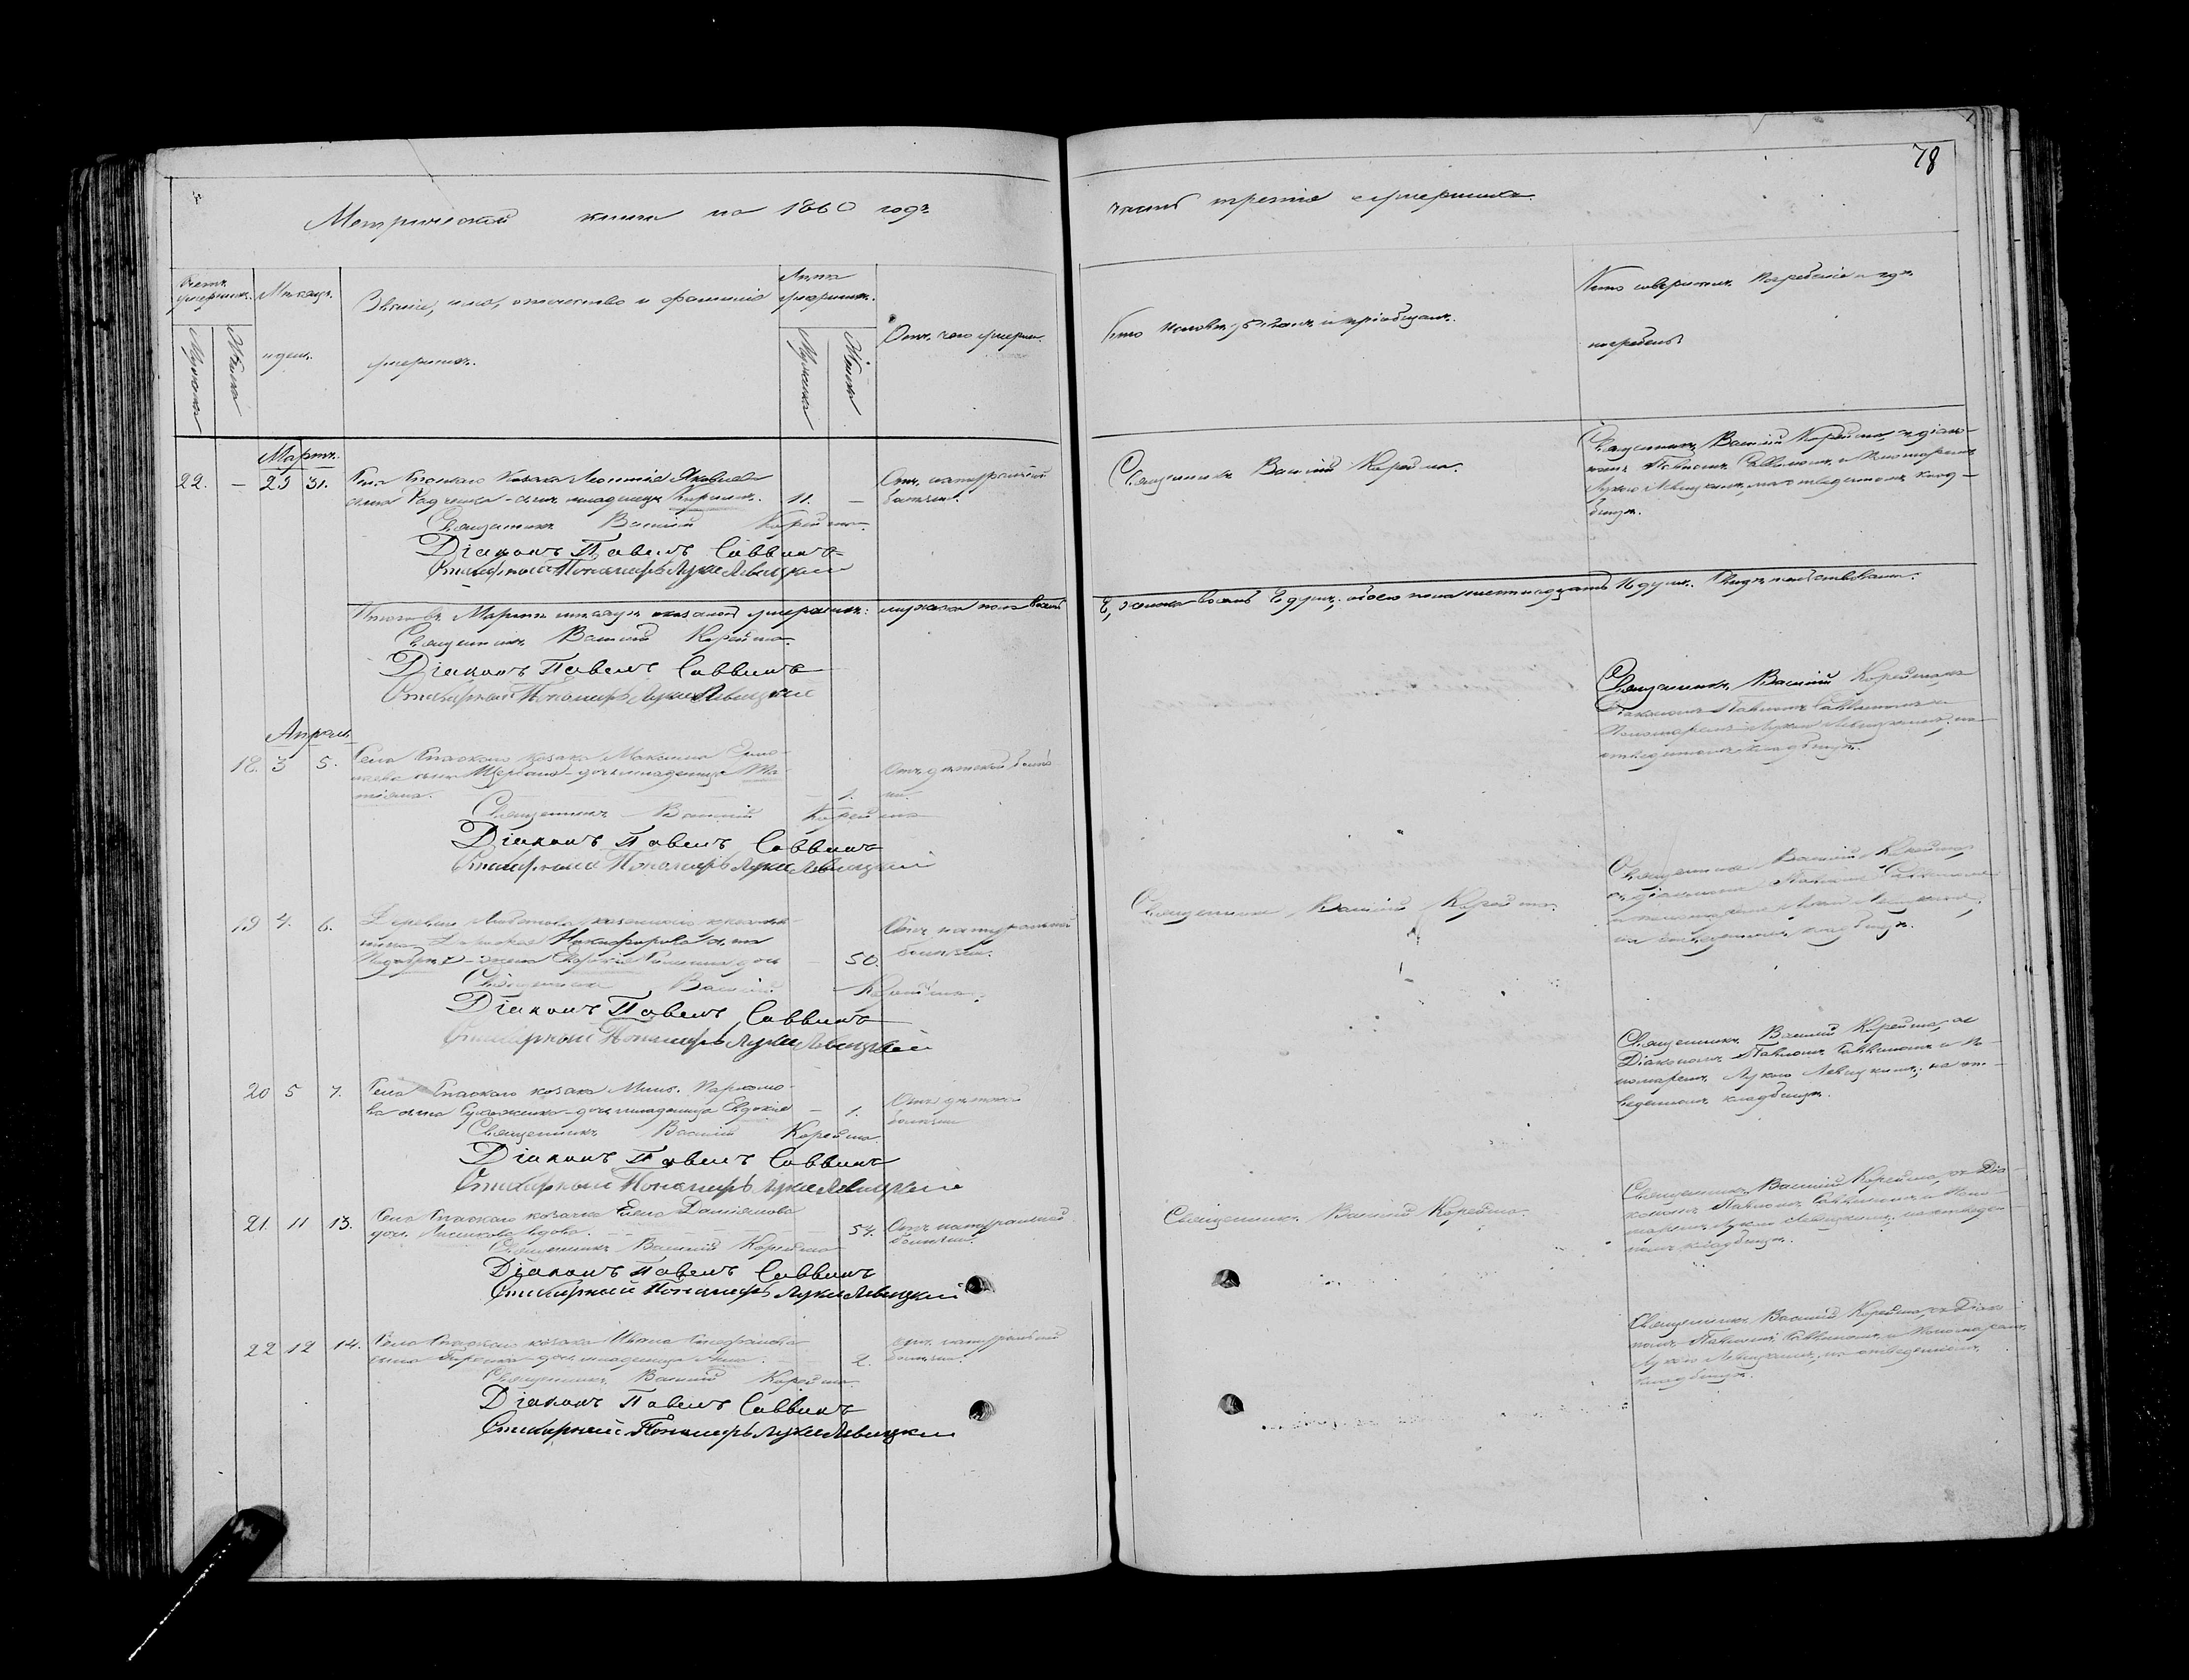 78
Метрической книги на 1860 годъ
часть третія о умершихъ.
Счетъ умершихъ.
Мужеска
Женска
Мѣсяцъ и день.
Званіе, имя, отечество и фамилія умершихъ.
Лѣта умершихъ.
Мужеска
Женска
Отъ чего умеръ.
Кто исповѣдывалъ и пріобщалъ.
Кто совершилъ погребеніе и гдѣ погребенъ.
Мартъ.
22. — 29 31. Села Спаскаго Козака Леонтія Яковлева
сына Радченка - сынъ младенецъ Кирилъ. 11. —
Отъ натуральной
болезни.
Священникъ Василій Корейша.
Діаконъ Павелъ Саввинъ
Стихарный Пономарь Лука Левицкій
Священникъ Василій Корейша.
Священникъ Василій Корейша, съ діако-
номъ Павломъ Саввиномъ и Пономаремъ
Лукою Левицкимъ, на отведенномъ клад-
бищѣ.
Итого въ Мартѣ мѣсяцѣ умершихъ: мужеска пола восемь
8, женска восемь 8 душъ; обоего пола шестнадцать 16 душъ.
Священникъ Василій Корейша.
Діаконъ Павелъ Саввинъ
Стихарный Пономарь Лука Левицкій
Апрель
18. 3 5. Села Спаскаго козака Максима
сына Щербака - дочь младенца Та-
тіана. 1.
Отъ детской болѣз-
ни.
Священникъ Василій Корейша
Діаконъ Павелъ Саввинъ
Стихарный Пономарь Лука Левицкій
Священникъ Василій Корейша съ
Діакономъ Павломъ Саввиномъ и
Пономаремъ Лукою Левицкимъ, на
отведенномъ кладбищѣ.
19 4. 6. Деревни
Никифорова сына
жена дочь 50.
Отъ натуральной
болезни.
Священникъ Василій Корейша.
Діаконъ Павелъ Саввинъ
Стихарный Пономарь Лука Левицкій
Священникъ Василій Корейша.
Священникъ Василій Корейша,
съ Діакономъ Павломъ Саввиномъ
и пономаремъ Лукою Левицкимъ,
на отведенномъ кладбищѣ.
20 5 7. Села Спаскаго козака Пархомо-
ва сына - дочь младенца Евдокія — 1.
Отъ детской
болезни
Священникъ Василій Корейша.
Діаконъ Павелъ Саввинъ
Стихарный Пономарь Лука Левицкій
Священникъ Василій Корейша, съ
Діакономъ Павломъ Саввиномъ и По-
номаремъ Лукою Левицкимъ; на от-
веденномъ кладбищѣ.
21. 11 13. Села Спаскаго козачка Елена Даміанова
дочь вдова. 54.
Отъ натуральной
болезни.
Священникъ Василій Корейша
Діаконъ Павелъ Саввинъ
Стихарный Пономарь Лука Левицкій
Священникъ Василій Корейша.
Священникъ Василій Корейша, съ Діа-
кономъ Павломъ Саввиномъ и Поно-
маремъ Лукою Левицкимъ; на отведен-
номъ кладбищѣ.
22 12 14. Села Спаскаго козака Ивана
сына - дочь младенца Анна. 2.
Отъ натуральной
болезни.
Священникъ Василій Корейша.
Діаконъ Павелъ Саввинъ
Стихарный Пономарь Лука Левицкій
Священникъ Василій Корейша, съ Діако-
номъ Павломъ Саввиномъ, и Пономаремъ
Лукою Левицкимъ, на отведенномъ
кладбищѣ.